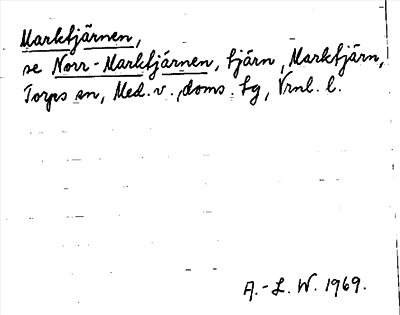 Marktjärnen,
se Norr-Marktjärnen, tjärn, Marktjärn,
Torps sn, Med. v. doms. tg, Vrnl. l.
A.-L. W. 1969.